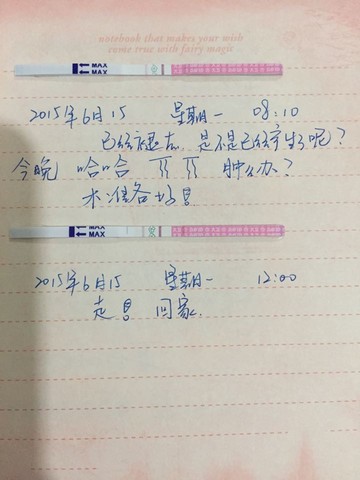 notebook that makes your wish
come true with fairy magic
MAX
MAX
2015年6月15 星期一 08:10
已经褪去,是不是已经产生了呢?
今晚 哈哈 丌丌 肿么办?
木准备
MAX
MAX
2015年6月15 星期一 12:00
走 回家.